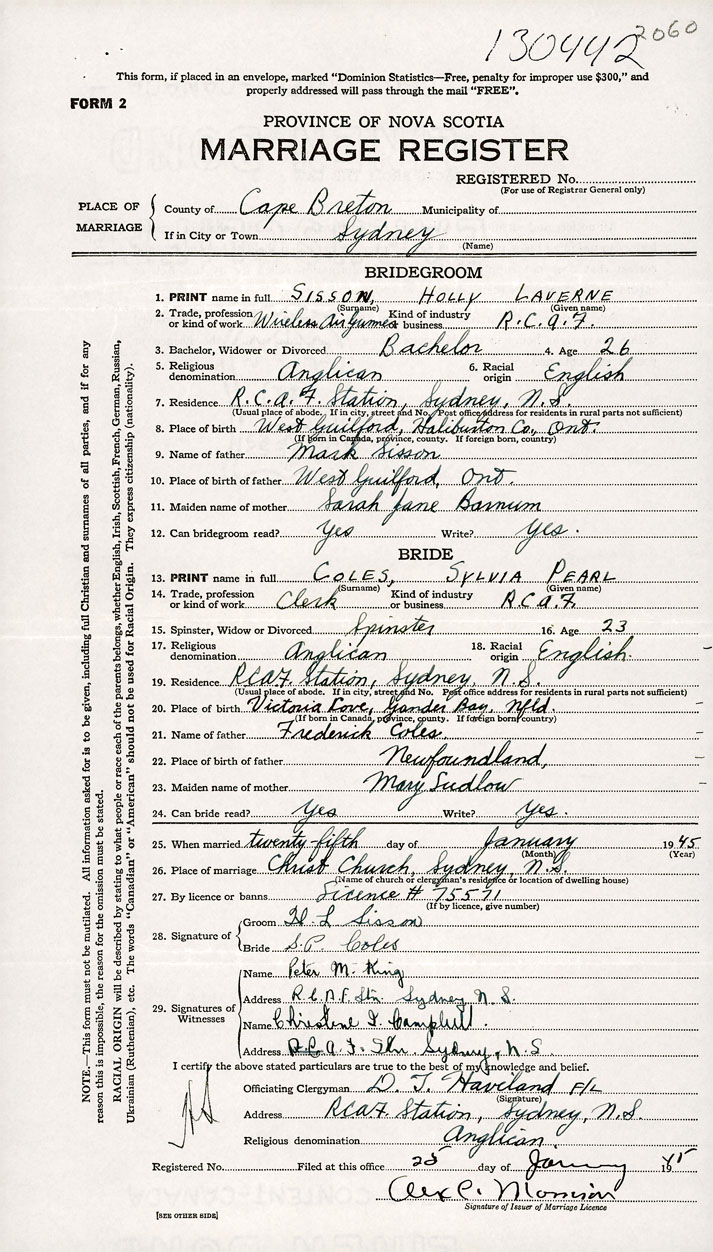 130442 2060
This form, if placed in an envelope, marked "Dominion Statistics—Free, penalty for improper use $300," and
properly addressed will pass through the mail "FREE".
FORM 2
PROVINCE OF NOVA SCOTIA
MARRIAGE REGISTER
REGISTERED No.
(For use of Registrar General only)
PLACE OF MARRIAGE
County of Cape Breton Municipality of
If in City or Town Sydney
(Name)
BRIDEGROOM
1. PRINT name in full SISSON, HOLLY LAVERNE
(Surname) (Given name)
2. Trade, profession or kind of work Wireless Air Gunner Kind of industry or business R.C.A.F.
3. Bachelor, Widower or Divorced Bachelor 4. Age 26
5. Religious denomination Anglican 6. Racial origin English
7. Residence R.C.A.F. Station, Sydney, N.S.
(Usual place of abode. If in city, street and No. Post office address for residents in rural parts not sufficient)
8. Place of birth West Guilford, Haliburton Co., Ont.
(If born in Canada, province, county. If foreign born, country)
9. Name of father Mark Sisson
10. Place of birth of father West Guilford, Ont.
11. Maiden name of mother Sarah Jane Barnum
12. Can bridegroom read? Yes Write? Yes.
BRIDE
13. PRINT name in full COLES, SYLVIA PEARL
(Surname) (Given name)
14. Trade, profession or kind of work Clerk Kind of industry or business R.C.A.F.
15. Spinster, Widow or Divorced Spinster 16. Age 23
17. Religious denomination Anglican 18. Racial origin English.
19. Residence RCAF Station, Sydney, N.S.
(Usual place of abode. If in city, street and No. Post office address for residents in rural parts not sufficient)
20. Place of birth Victoria Cove, Gander Bay, Nfld.
(If born in Canada, province, county. If foreign born, country)
21. Name of father Frederick Coles.
22. Place of birth of father Newfoundland,
23. Maiden name of mother Mary Sudlow
24. Can bride read? Yes Write? Yes.
25. When married twenty-fifth day of January 1945
(Month) (Year)
26. Place of marriage Christ Church, Sydney, N.S.
(Name of church or clergyman's residence or location of dwelling house)
27. By licence or banns Licence # 75571
(If by licence, give number)
28. Signature of
Groom H. L. Sisson
Bride S.P. Coles
29. Signatures of Witnesses
Name Peter M. King
Address R.C.A.F. Stn. Sydney N.S.
Name Christene I. Campbell.
Address R.C.A.F. Stn. Sydney, N.S.
I certify the above stated particulars are true to the best of my knowledge and belief.
Officiating Clergyman D. T. Haviland F/L
(Signature)
Address RCAF Station, Sydney, N.S.
Religious denomination Anglican
Registered No. Filed at this office 25 day of January 1945
Alex C. Morrison
Signature of Issuer of Marriage Licence
[SEE OTHER SIDE]
NOTE.—This form must not be mutilated. All information asked for is to be given, including full Christian and surnames of all parties, and if for any
reason this is impossible, the reason for the omission must be stated.
RACIAL ORIGIN will be described by stating to what people or race each of the parents belongs, whether English, Irish, Scottish, French, German, Russian,
Ukrainian (Ruthenian), etc. The words "Canadian" or "American" should not be used for Racial Origin. They express citizenship (nationality).